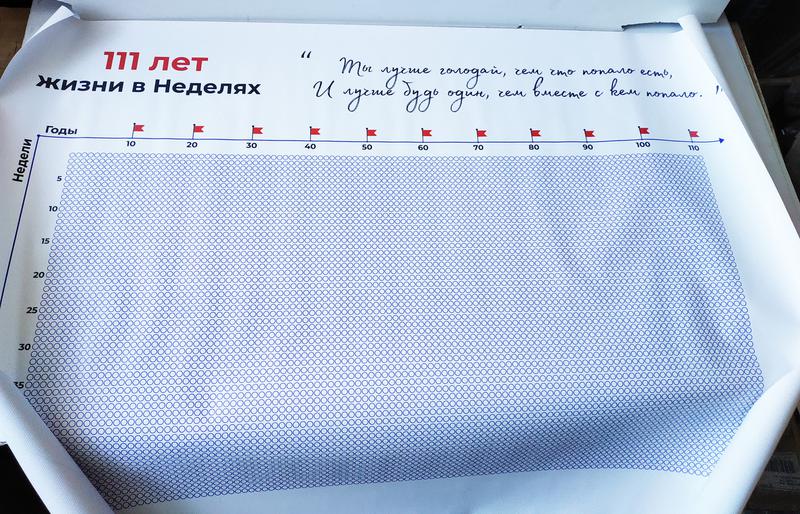 111 лет
жизни в Неделях
“ Ты лучше голодай, чем что попало есть,
И лучше будь один, чем вместе с кем попало. ”
Годы
10 20 30 40 50 60 70 80 90 100 110
Недели
5
10
15
20
25
30
35